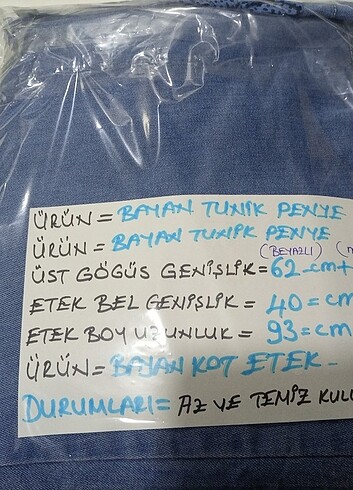 ÜRÜN = BAYAN TUNİK PENYE
ÜRÜN = BAYAN TUNİK PENYE
(BEYAZLI)
ÜST GÖGÜS GENİŞLİK = 62 cm+
ETEK BEL GENİŞLİK = 40 = cm
ETEK BOY UZUNLUK = 93 = cm
ÜRÜN = BAYAN KOT ETEK -
DURUMLARI = AZ VE TEMİZ KULL